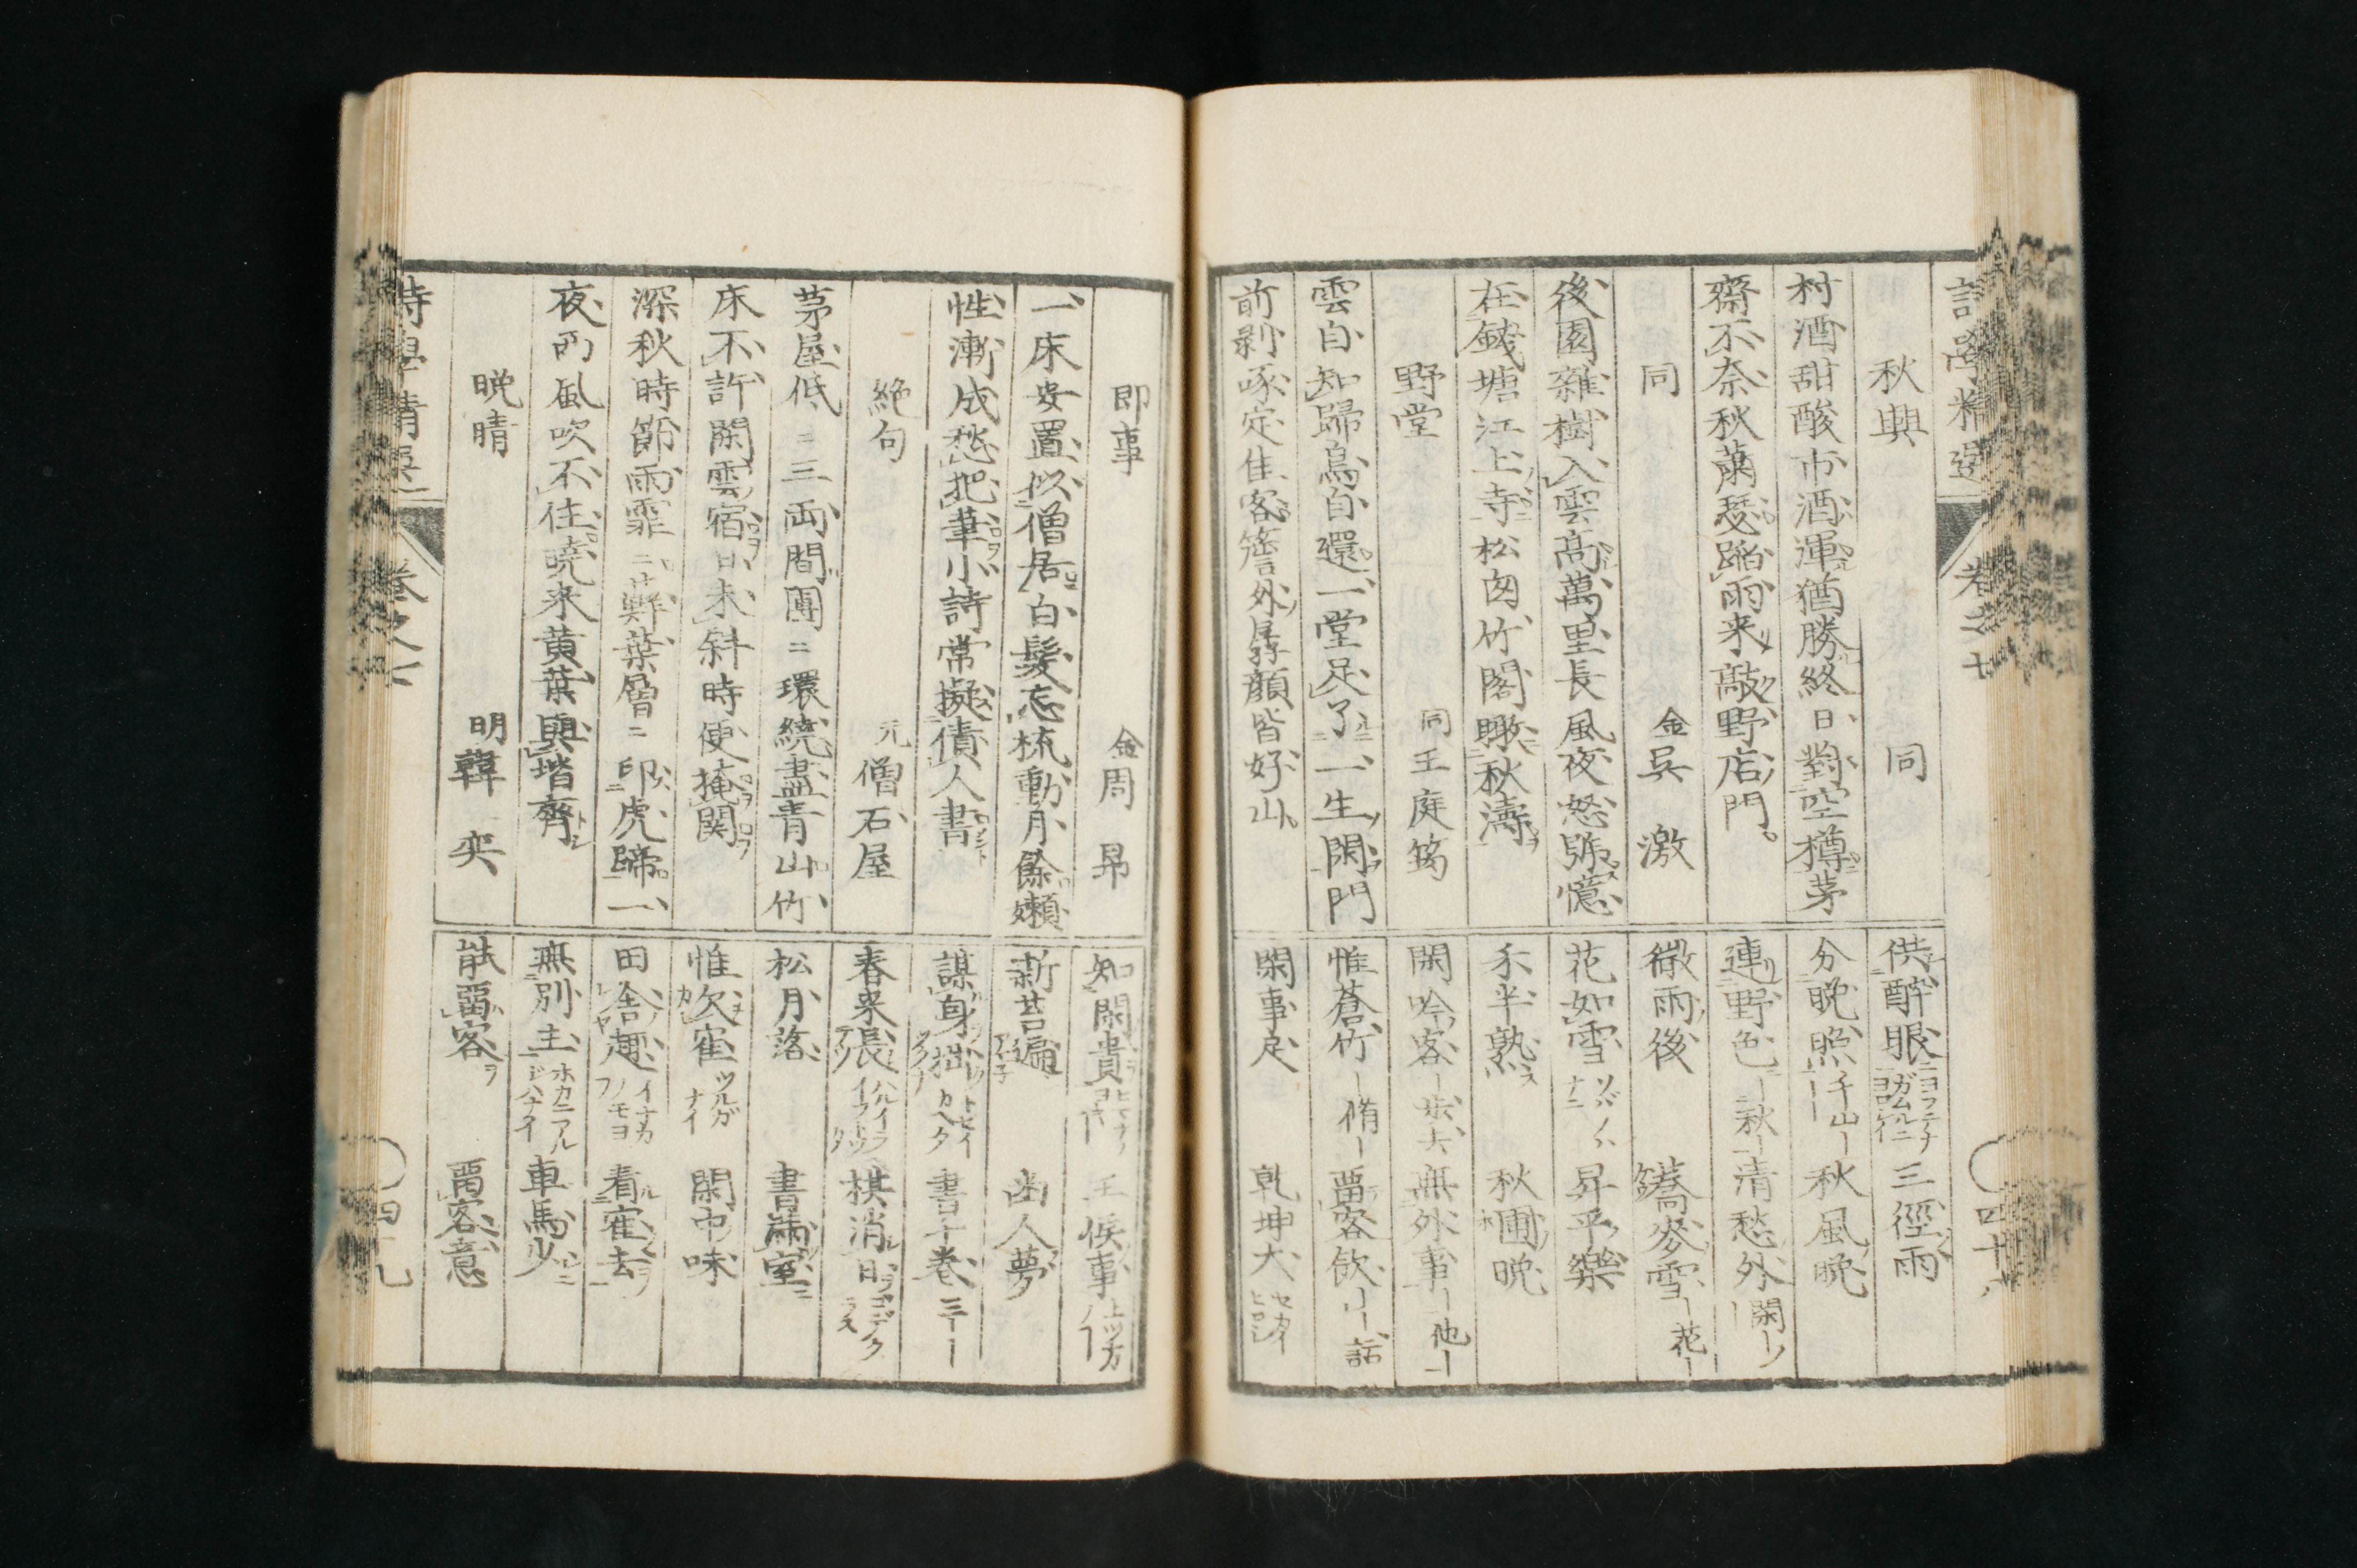 詩學精選 卷之七 四十八
秋興 同
村酒甜酸市酒渾猶勝終日對空樽茅
齋不奈秋蕭瑟蹈雨来敲野店門
同 金 吳 激
後園雜樹入雲高萬里長風夜怒號憶
在錢塘江上寺松囱竹閣瞰秋濤
野堂 同 王庭筠
雲自知歸鳥自還一堂足了一生閑門
前剥啄定佳客簷外孱顔皆好山
供醉眼 三徑雨
分晩照 千山｜ 秋風晩
連野色 ｜秋｜ 清愁外 閑｜
微雨後 蕎麥雪 ｜花｜
花如雪 昇平樂
禾半熟 秋圃晩
閑吟客 無外事 ｜他｜
惟蒼竹 ｜脩｜ 畱客飲 ｜話
閑事足 乾坤大 セカイヒロシ
即事 金 周 昂
一床安置似僧居白髮忘梳動月餘嬾
性漸成愁把筆小詩常擬債人書
絶句 元 僧石屋
茅屋低ニ三両間團ニ環繞盡青山竹
床不許閑雲宿日未斜時便掩関
深秋時節雨霏ニ蘚葉層ニ印虎蹄一
夜西風吹不住曉来黄葉與堦齊
晩晴 明 韓 奕
知閑貴 王侯事
新苔遍 幽人夢
謀身拙 書千巻 三｜
春来張 棋消日
松月落 書滿室
惟欠寉 ツルガナイ 閑中味
田舎趣 看寉去
無別主 車馬少
能畱客 畱客意
詩學精選 卷之七 四十九